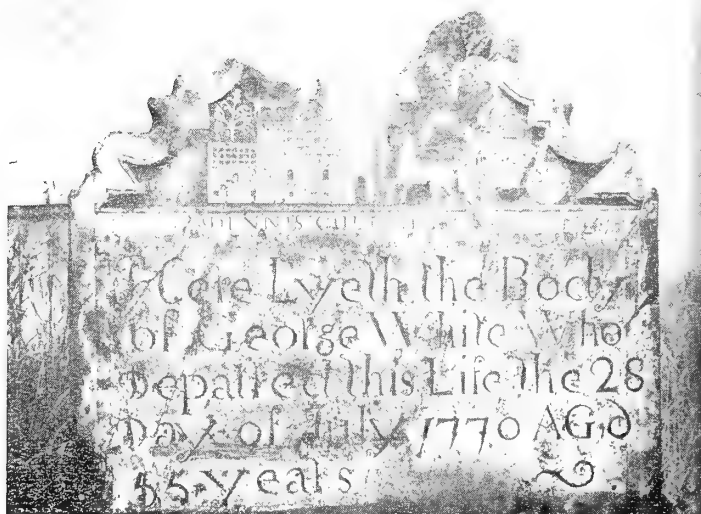 Here Lyeth the Body
of George White Who
Departed this Life the 28
Day of July 1770 AG,D
55 years